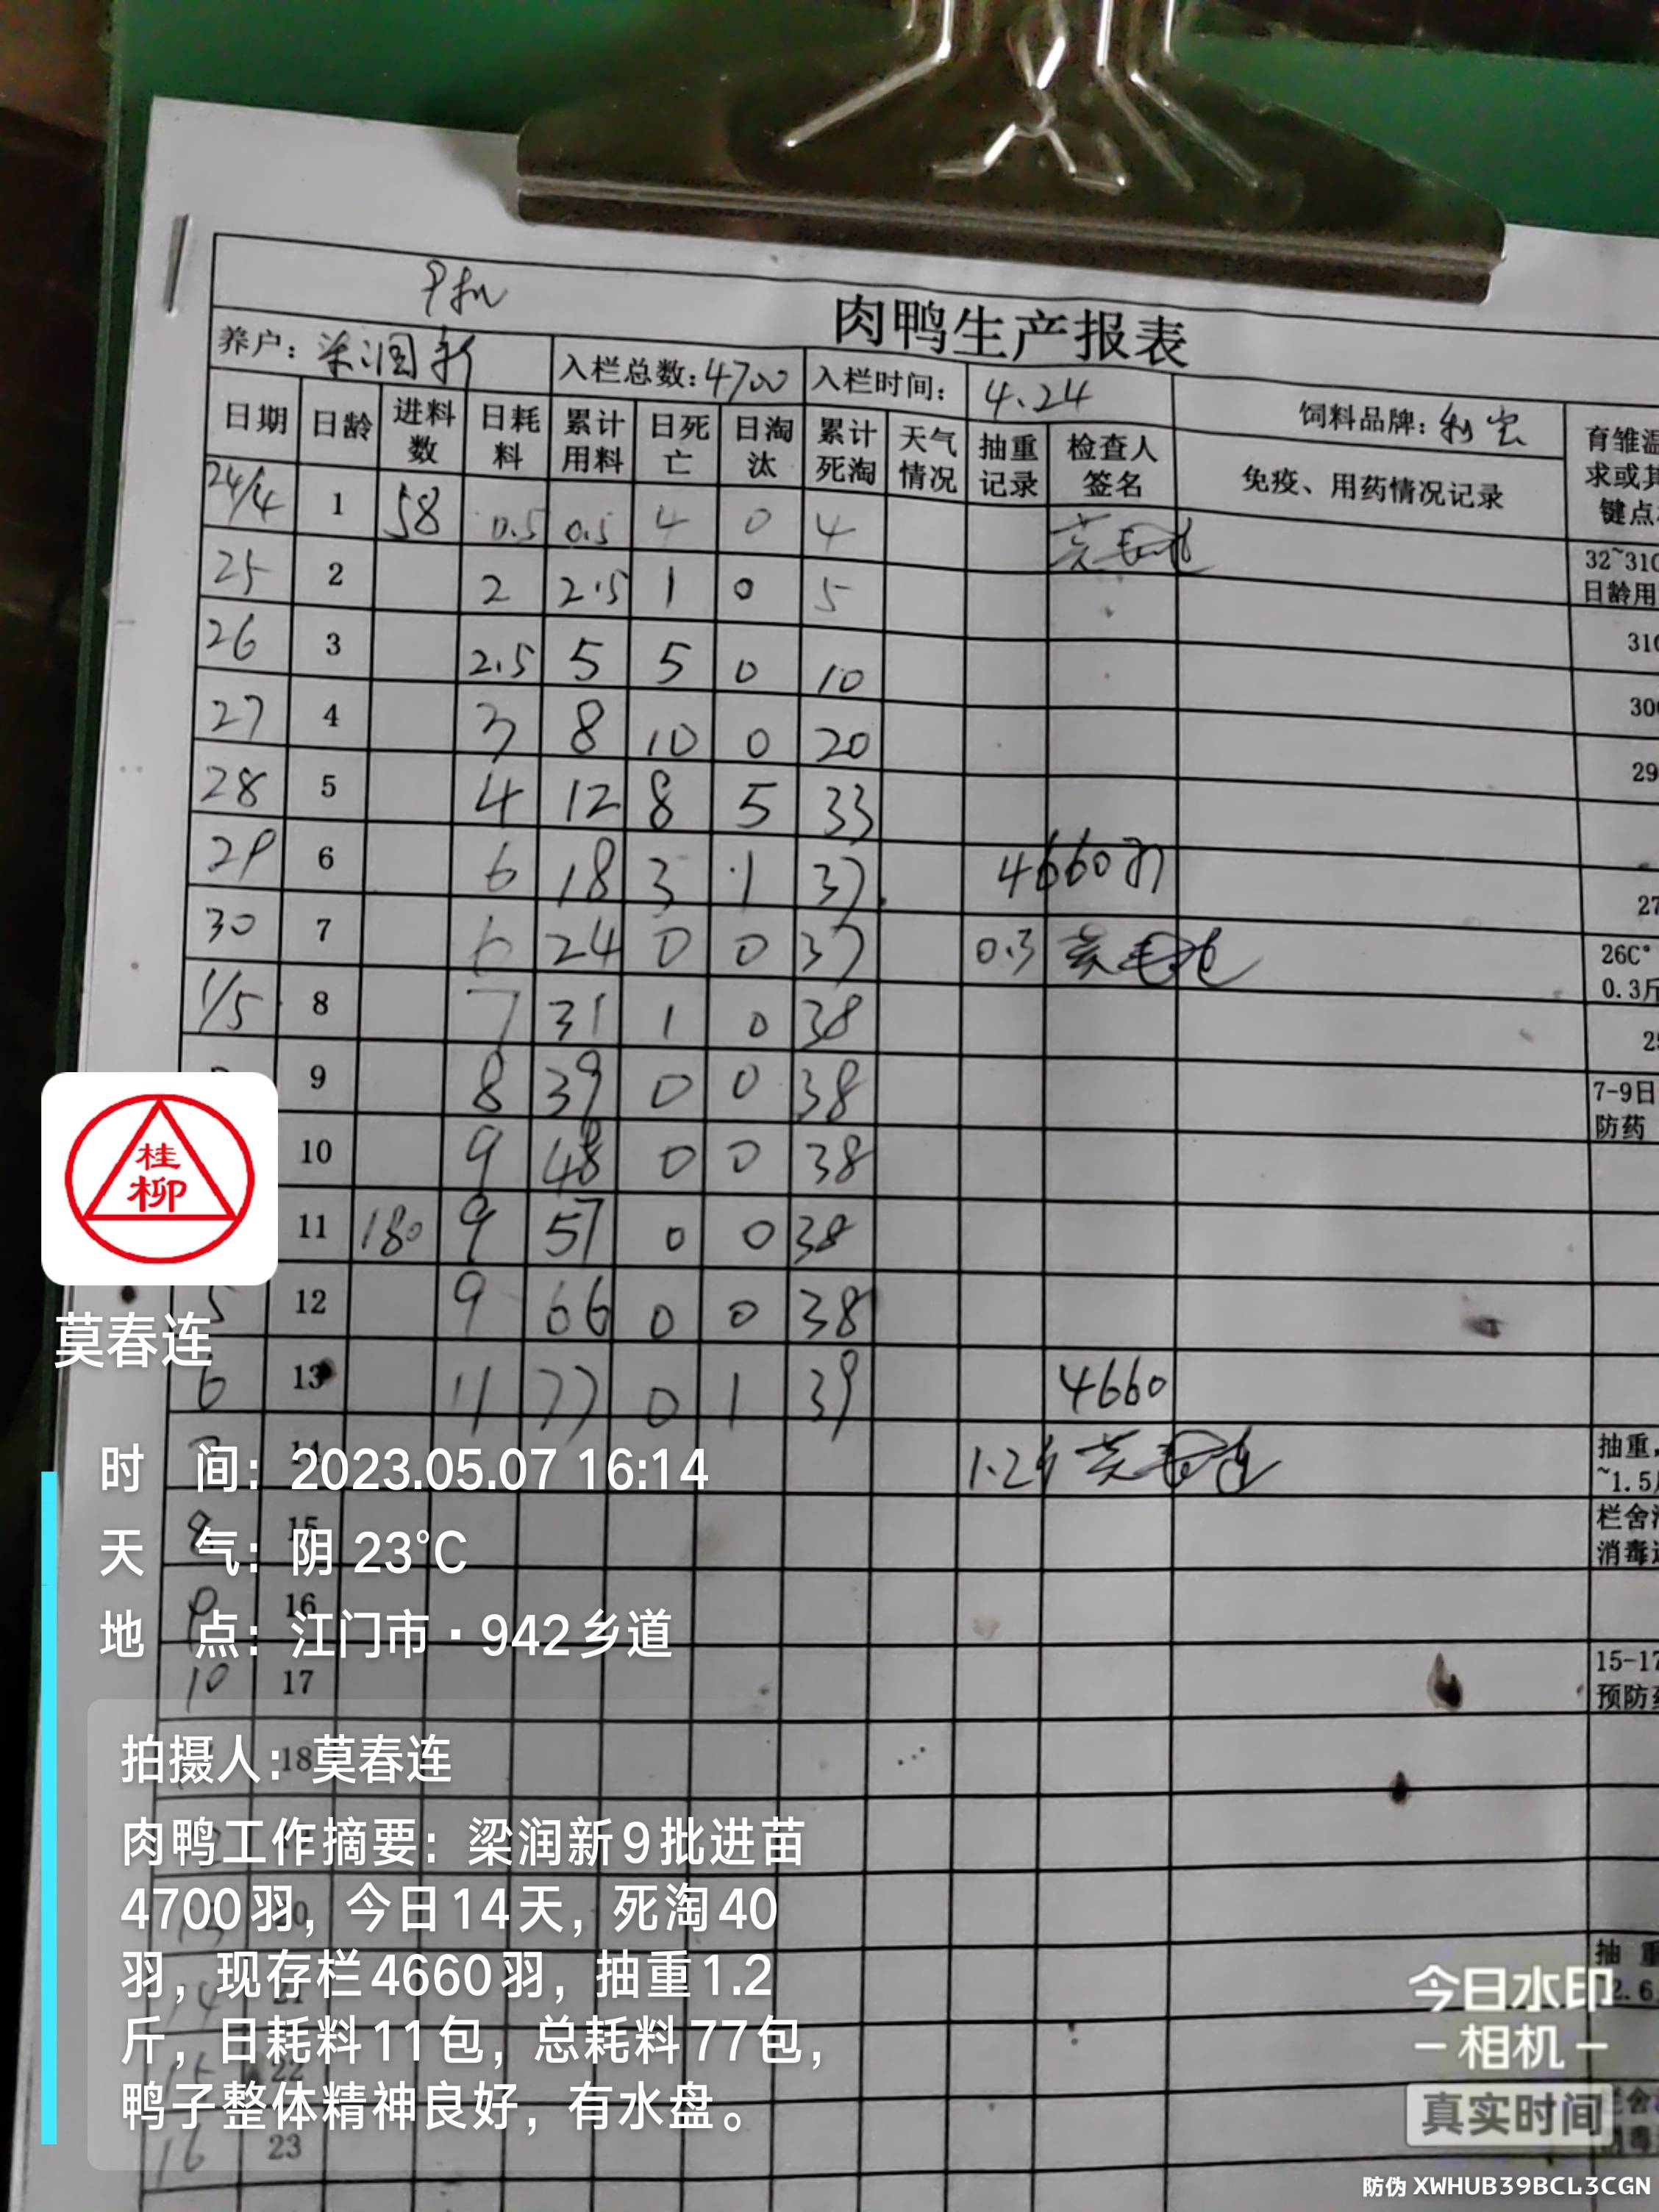 肉鸭生产报表
养户：梁润新 入栏总数：4700 入栏时间： 4.24 饲料品牌：
日期 日龄 进料数 日耗料 累计用料 日死亡 日淘汰 累计死淘 天气情况 抽重记录 检查人签名 免疫、用药情况记录 育雏温
求或其
键点
24/4 1 58 0.5 0.5 4 0 4 莫春连 32~31C
日龄用
25 2 2 2.5 1 0 5 310
26 3 2.5 5 5 0 10 300
27 4 3 8 10 0 20 29
28 5 4 12 8 5 33
29 6 6 18 3 1 37 4660羽 27
30 7 6 24 0 0 37 0.3 莫春连 26C°
0.3斤
1/5 8 7 31 1 0 38 25
9 8 39 0 0 38 7-9日
防药
10 9 48 0 0 38
11 180 9 57 0 0 38
5 12 9 66 0 0 38
6 13 11 77 0 1 39 4660
7 14 1.2斤 莫春连 抽重，
~1.5斤
8 15 栏舍
消毒
9 16
10 17 15-17
预防药
18
20
14 21 抽重
2.6
15 22
16 23
桂柳
莫春连
时 间：2023.05.07 16:14
天 气：阴 23℃
地 点：江门市·942乡道
拍摄人：莫春连
肉鸭工作摘要：梁润新9批进苗
4700羽，今日14天，死淘40
羽，现存栏4660羽，抽重1.2
斤，日耗料11包，总耗料77包，
鸭子整体精神良好，有水盘。
今日水印
相机
真实时间
防伪 XWHUB39BCL3CGN